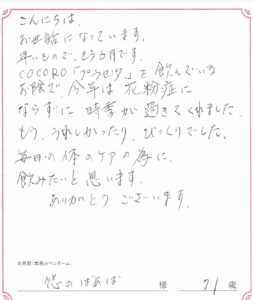 こんにちは。
お世話になっています。
早いもので、もう6月です。
COCORO「プラセンタ」を飲んでいる
お陰で、今年は花粉症に
ならずに時季が過ぎてくれました。
もう、うれしかったり、びっくりでした。
毎日の体のケアの為に、
飲みたいと思います。
ありがとうございます。
お名前(本名orペンネーム)
悠のばあば 様 71 歳